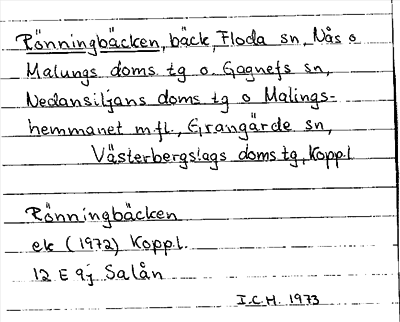 Rönningbäcken, bäck, Floda sn, Nås o
Malungs doms tg o. Gagnefs sn,
Nedansiljans doms tg o Malings-
hemmanet m fl., Grangärde sn,
Västerbergslags doms tg, Kopp.l.
Rönningbäcken
ek (1972) Kopp.l.
12 E 9j Salån
I.C.H. 1973